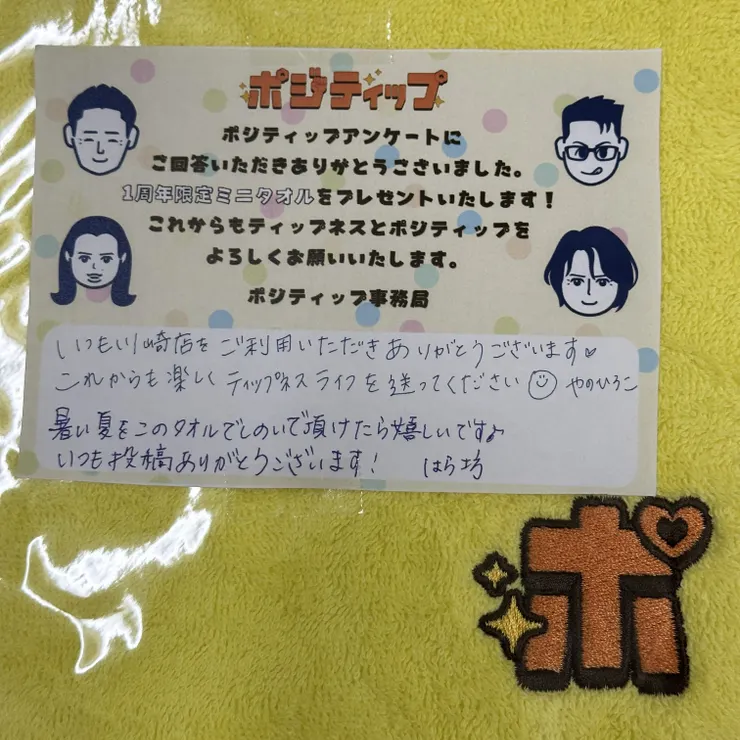 ポジティップ
ポジティップアンケートに
ご回答いただきありがとうございました。
1周年限定ミニタオルをプレゼントいたします！
これからもティップネスとポジティップを
よろしくお願いいたします。
ポジティップ事務局
いつも川崎店をご利用いただきありがとうございます♡
これからも楽しくティップネスライフを送ってください☺ やのひろこ
暑い夏をこのタオルでしのいで頂けたら嬉しいです♪
いつも投稿ありがとうございます！ はら坊
ポ